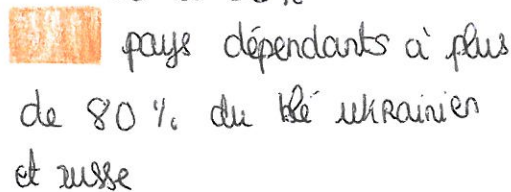 pays dépendants à plus
de 80 % du blé ukrainien
et russe